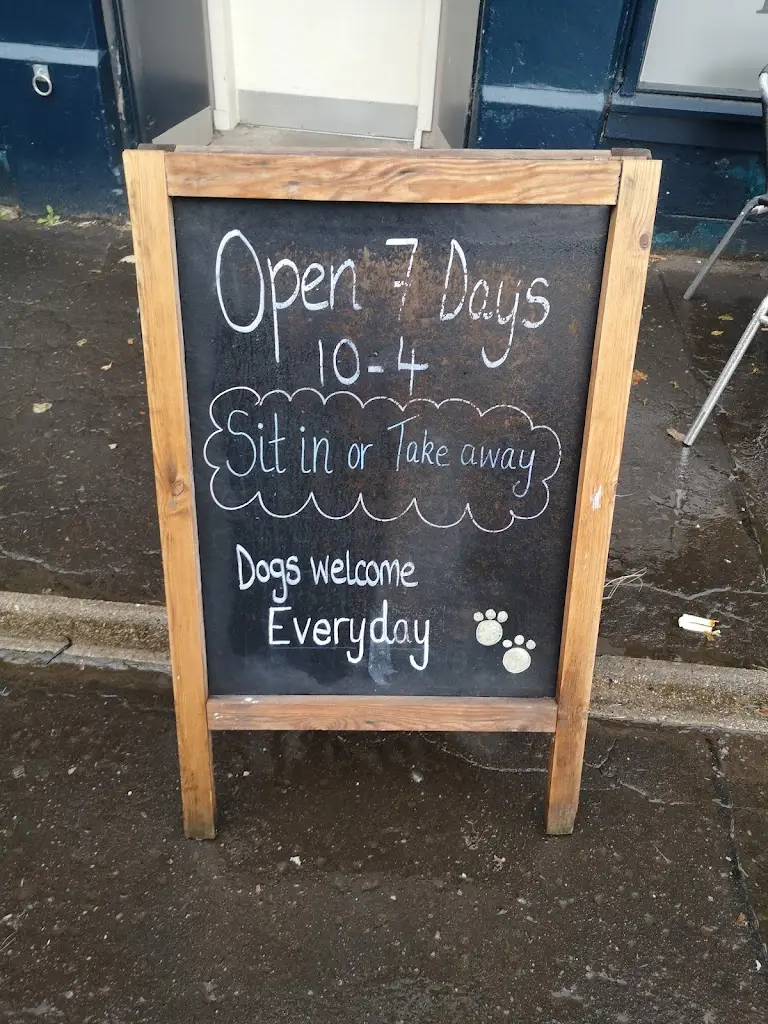 Open 7 Days
10-4
Sit in or Take away
Dogs welcome
Everyday